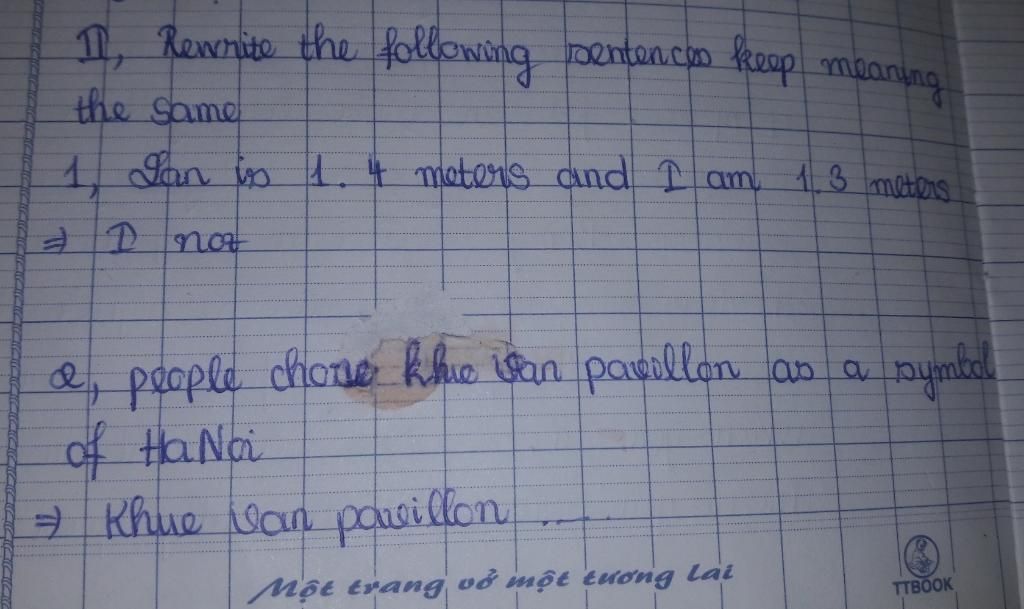 II, Rewrite the following sentences keep meaning
the same
1, Lan is 1.4 meters and I am 1.3 meters
⇒ I not
2, people chose khue Van pavillon as a symbol
of HaNoi
⇒ Khue Van pavillon .....
Một trang vở một tương lai
TTBOOK